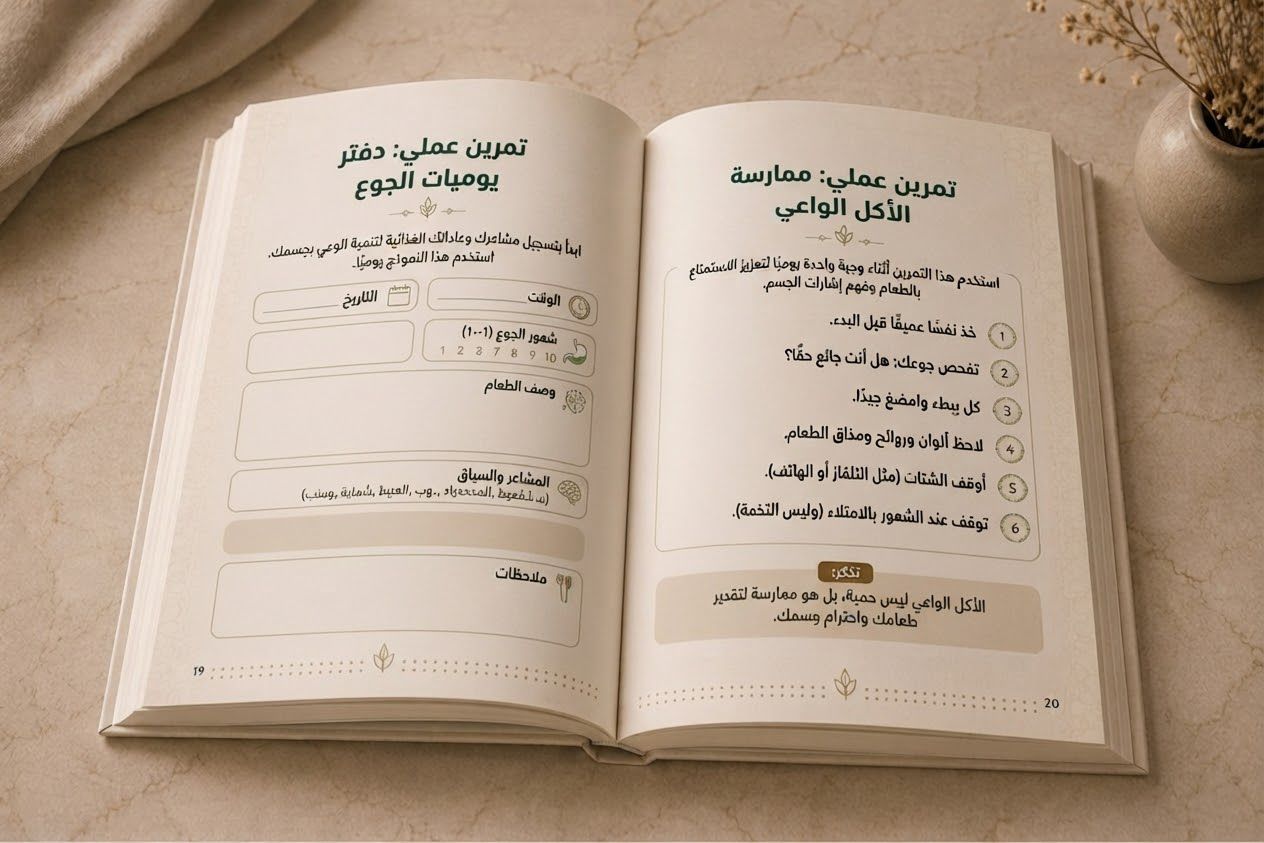 تمرين عملي: دفتر
يوميات الجوع
ابدأ بتسجيل مشاعرك وعاداتك الغذائية لتنمية الوعي بجسمك.
استخدم هذا النموذج يوميًا.
الوقت
التاريخ
شعور الجوع (1-10)
1 2 3 7 8 9 10
وصف الطعام
المشاعر والسياق
ملاحظات
19
تمرين عملي: ممارسة
الأكل الواعي
استخدم هذا التمرين أثناء وجبة واحدة يوميًا لتعزيز الاستمتاع
بالطعام وفهم إشارات الجسم.
1 خذ نفسًا عميقًا قبل البدء.
2 تفحص جوعك: هل أنت جائع حقًا؟
3 كل ببطء وامضغ جيدًا.
4 لاحظ ألوان وروائح ومذاق الطعام.
5 أوقف الشتات (مثل التلفاز أو الهاتف).
6 توقف عند الشعور بالامتلاء (وليس التخمة).
تذكر:
الأكل الواعي ليس حمية، بل هو ممارسة لتقدير
طعامك واحترام وسمك.
20